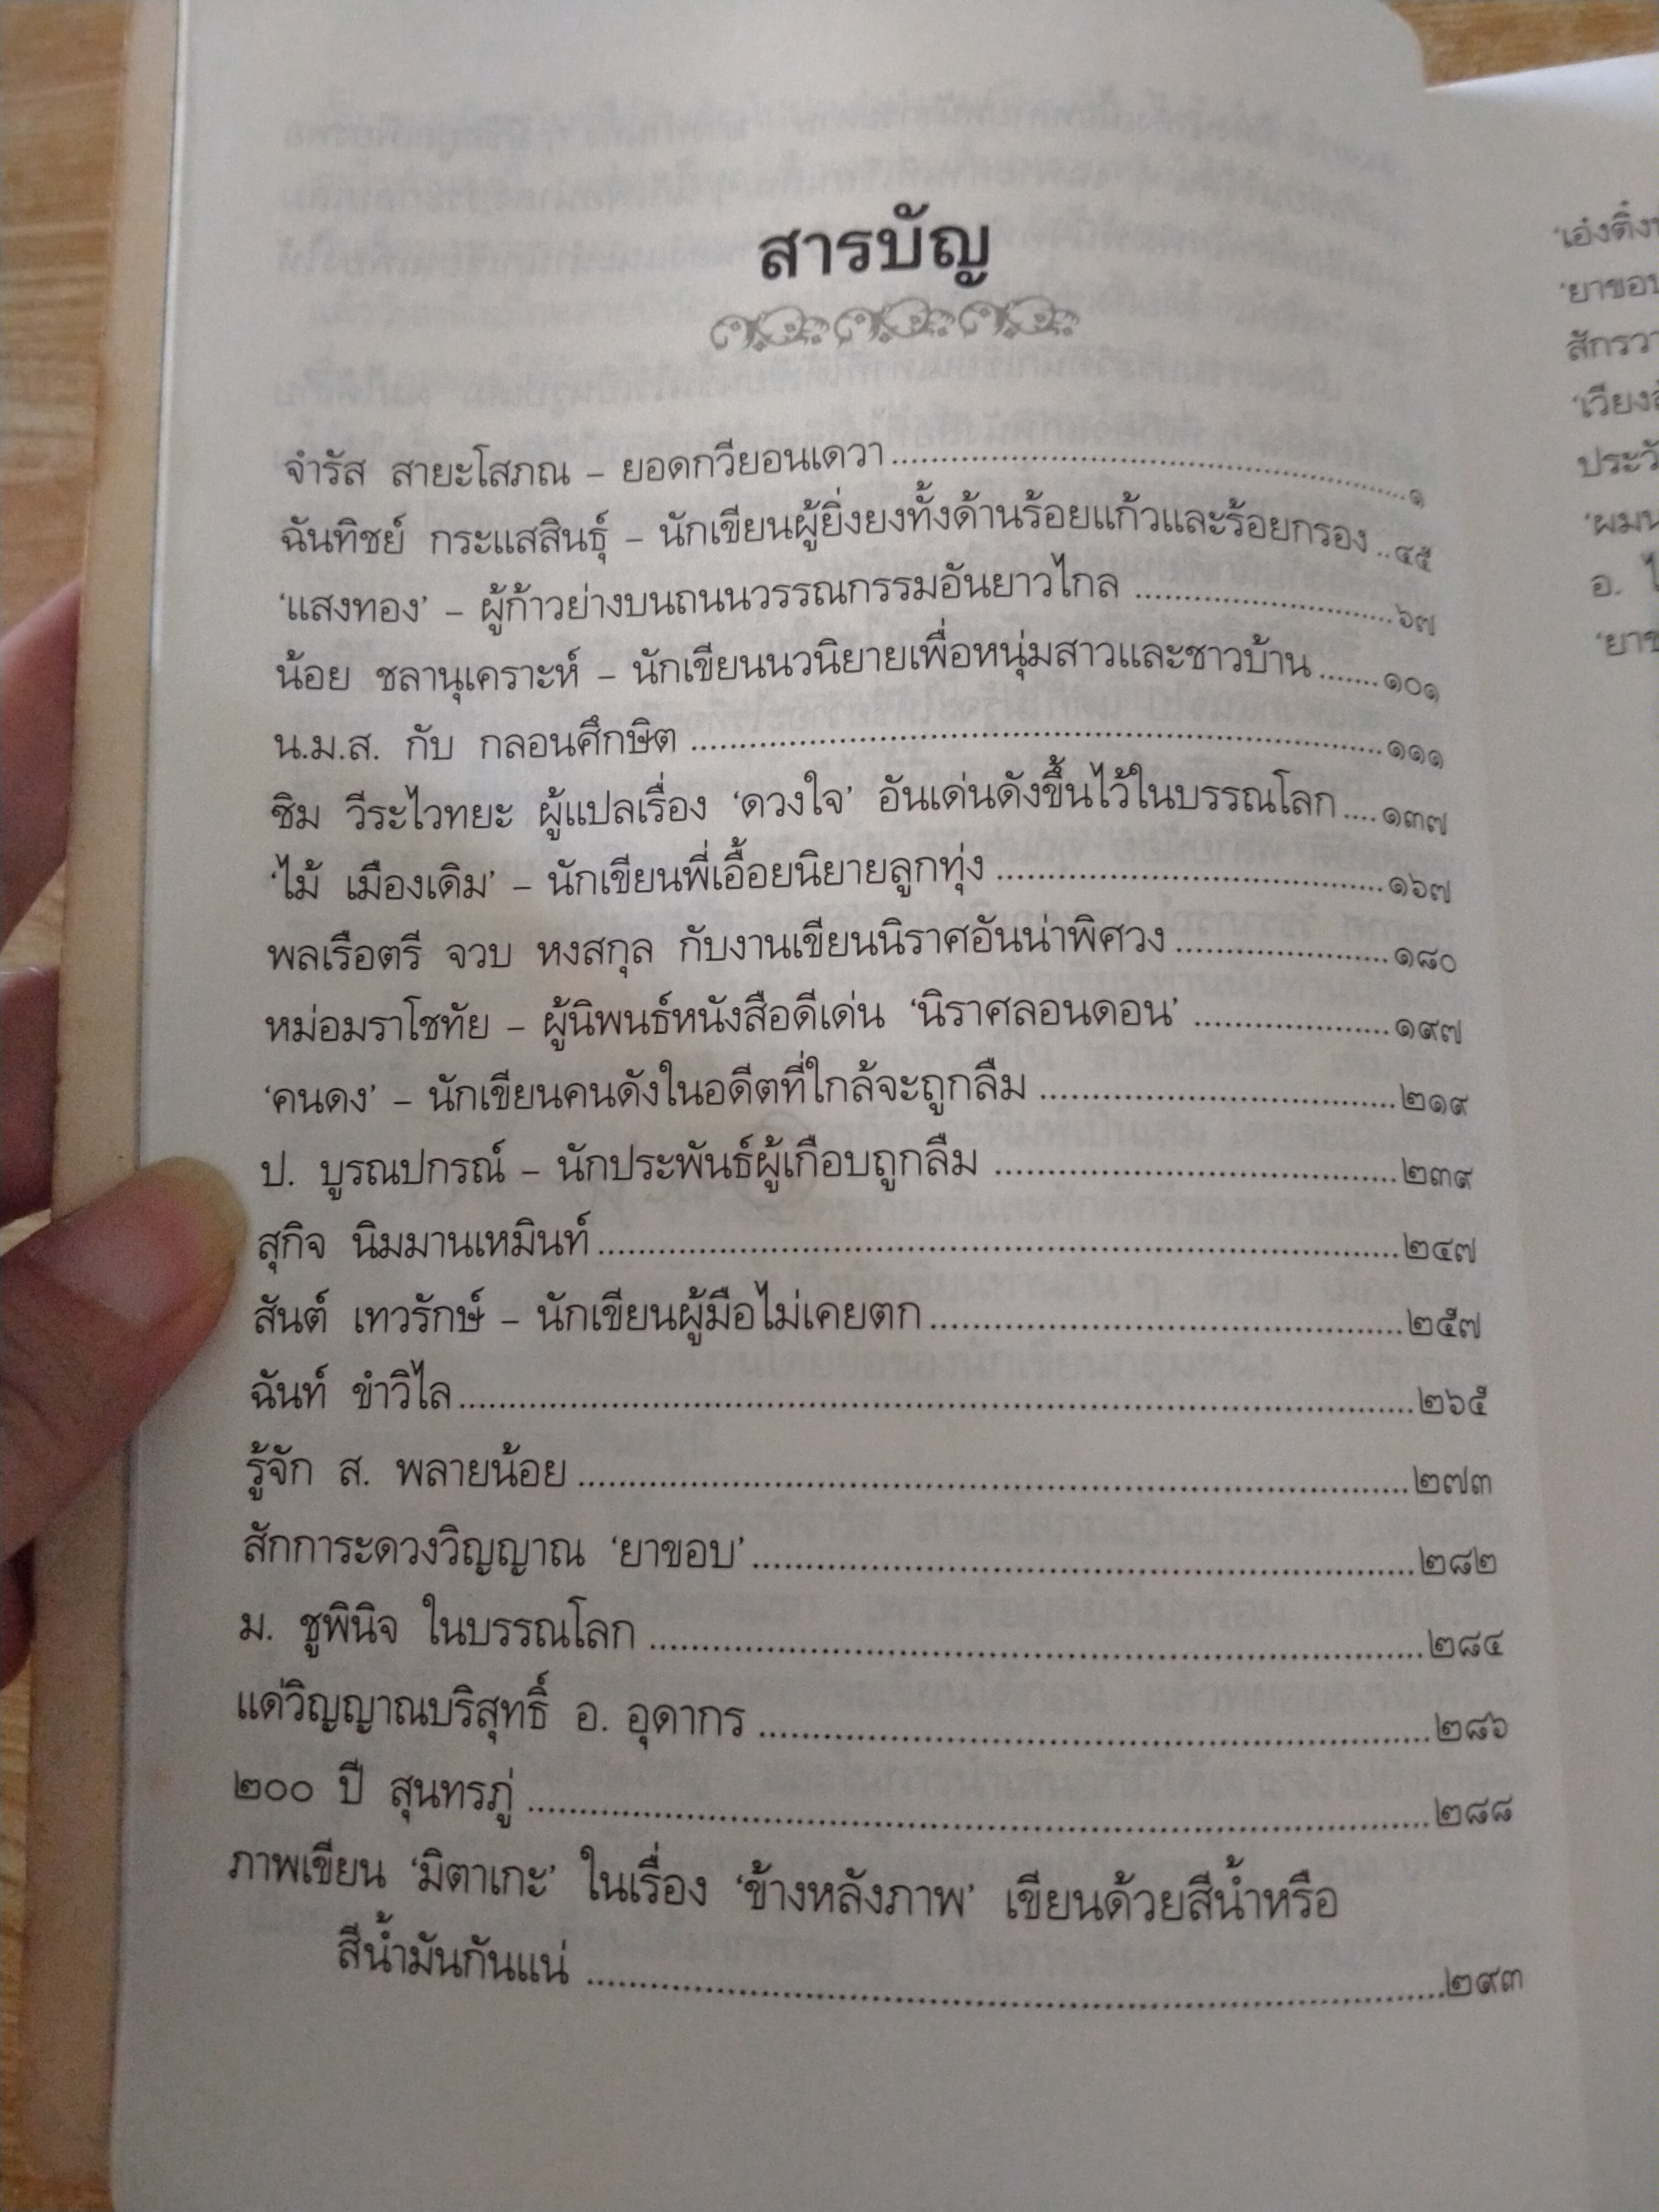 สารบัญ
จำรัส สายะโสภณ – ยอดกวียอนเดวา........................................................๑
ฉันทิชย์ กระแสสินธุ์ – นักเขียนผู้ยิ่งยงทั้งด้านร้อยแก้วและร้อยกรอง..๔๕
'แสงทอง' – ผู้ก้าวย่างบนถนนวรรณกรรมอันยาวไกล ..........................๖๗
น้อย ชลานุเคราะห์ – นักเขียนนวนิยายเพื่อหนุ่มสาวและชาวบ้าน.......๑๐๑
น.ม.ส. กับ กลอนศึกษิต ......................................................................๑๑๑
ชิม วีระไวทยะ ผู้แปลเรื่อง 'ดวงใจ' อันเด่นดังขึ้นไว้ในบรรณโลก....๑๓๗
'ไม้ เมืองเดิม' – นักเขียนพี่เอื้อยนิยายลูกทุ่ง ......................................๑๖๗
พลเรือตรี จวบ หงสกุล กับงานเขียนนิราศอันน่าพิศวง.....................๑๘๐
หม่อมราโชทัย – ผู้นิพนธ์หนังสือดีเด่น 'นิราศลอนดอน' ...................๑๙๗
'คนดง' – นักเขียนคนดังในอดีตที่ใกล้จะถูกลืม ...................................๒๑๙
ป. บูรณปกรณ์ – นักประพันธ์ผู้เกือบถูกลืม .......................................๒๓๙
สุกิจ นิมมานเหมินท์..............................................................................๒๔๗
สันต์ เทวรักษ์ – นักเขียนผู้มือไม่เคยตก..............................................๒๕๗
ฉันท์ ขำวิไล............................................................................................๒๖๕
รู้จัก ส. พลายน้อย ................................................................................๒๗๓
สักการะดวงวิญญาณ 'ยาขอบ'................................................................๒๘๒
ม. ชูพินิจ ในบรรณโลก ..........................................................................๒๘๔
แด่วิญญาณบริสุทธิ์ อ. อุดากร ................................................................๒๘๖
๒๐๐ ปี สุนทรภู่ ......................................................................................๒๘๘
ภาพเขียน 'มิตาเกะ' ในเรื่อง 'ข้างหลังภาพ' เขียนด้วยสีน้ำหรือ
สีน้ำมันกันแน่ ..................................................................................๒๙๓
'ยาขอบ
อ.